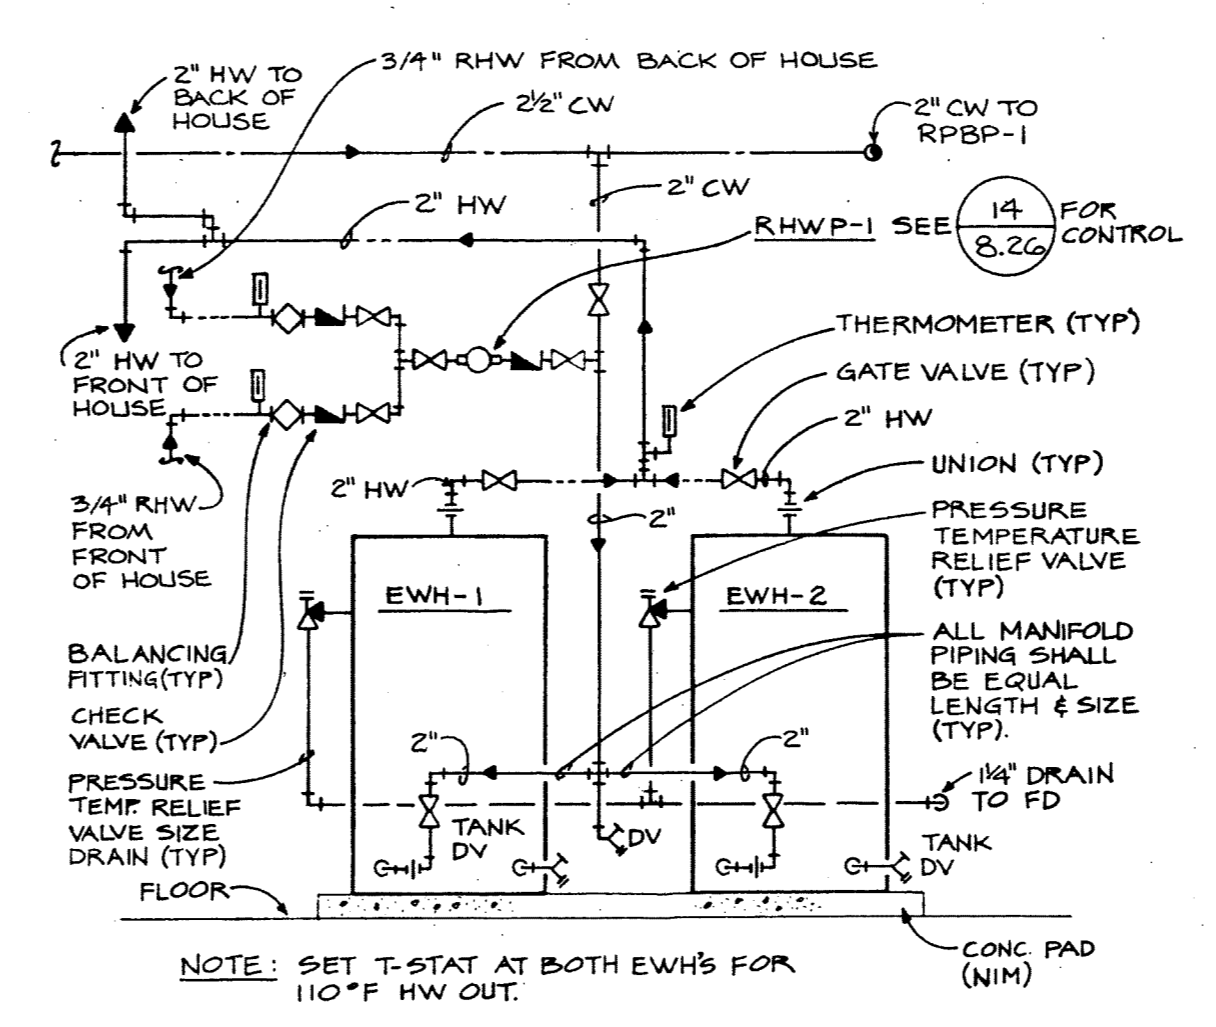 3/4" RHW FROM BACK OF HOUSE
2" HW TO
BACK OF
HOUSE
2½" CW
2" CW TO
RPBP-1
2" CW
2" HW
RHWP-1 SEE
14
8.26
FOR
CONTROL
THERMOMETER (TYP)
2" HW TO
FRONT OF
HOUSE
GATE VALVE (TYP)
2" HW
2" HW
UNION (TYP)
3/4" RHW
FROM
FRONT
OF HOUSE
2"
PRESSURE
TEMPERATURE
RELIEF VALVE
(TYP)
EWH-1
EWH-2
ALL MANIFOLD
PIPING SHALL
BE EQUAL
LENGTH & SIZE
(TYP).
BALANCING
FITTING(TYP)
CHECK
VALVE (TYP)
2"
2"
PRESSURE
TEMP. RELIEF
VALVE SIZE
DRAIN (TYP)
1¼" DRAIN
TO FD
TANK
DV
DV
TANK
DV
FLOOR
CONC. PAD
(NIM)
NOTE: SET T-STAT AT BOTH EWH'S FOR
110°F HW OUT.